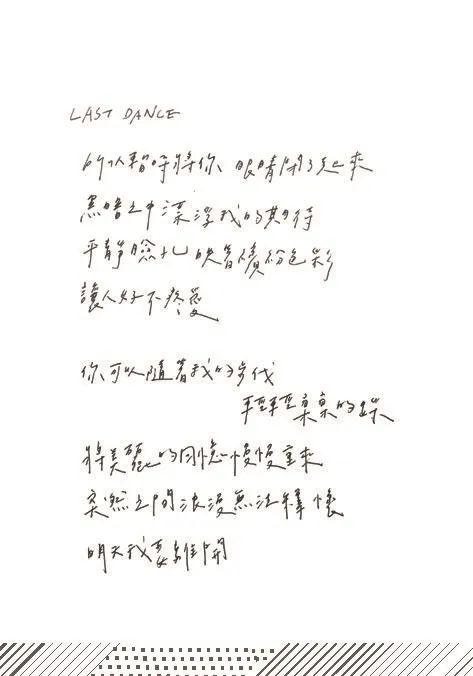 LAST DANCE
所以暫時將你眼睛閉了起來
黑暗之中漂浮我的期待
平靜臉孔映著繽紛色彩
讓人好不疼愛
你可以隨著我的步伐
輕輕柔柔的踩
將美麗的回憶慢慢重來
突然之間浪漫無法釋懷
明天我要離開